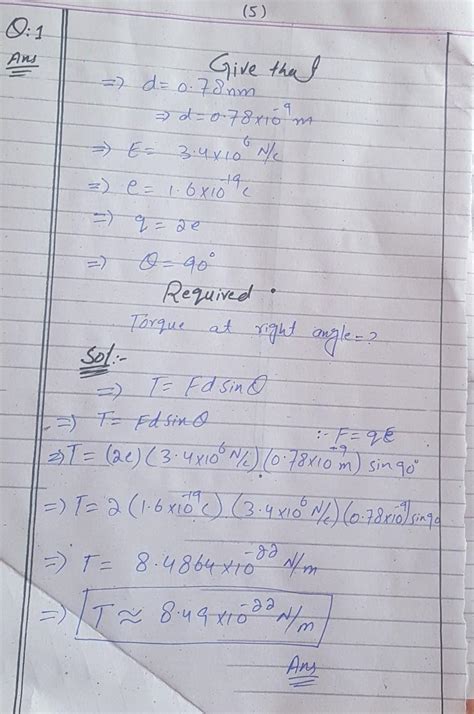 (5)
Q:1
Ans
Give that
=> d = 0.78nm
=> d = 0.78x10⁻⁹m
=> E = 3.4x10⁶ N/c
=> e = 1.6x10⁻¹⁹c
=> q = 2e
=> θ = 90°
Required.
Torque at right angle = ?
Sol:-
=> T = Fd sinθ
=> T = Fd sinθ ∵ F = qE
=> T = (2e) (3.4x10⁶ N/c) (0.78x10⁻⁹ m) sin90°
=> T = 2 (1.6x10⁻¹⁹c) (3.4x10⁶ N/c) (0.78x10⁻⁹) sin90
=> T = 8.4864x10⁻²² N/m
=> T ≈ 8.49x10⁻²² N/m
Ans